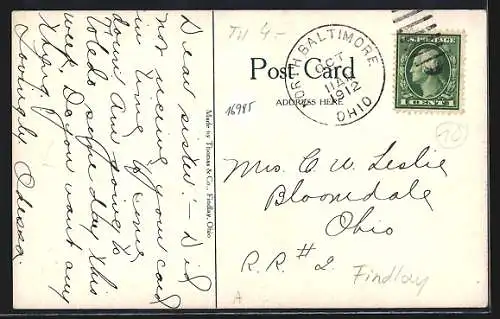 Dear sister:- Did
not recieve your card
in time to come
down. Am going to
Toledo some day this
week. Do you want any
thing
Lovingly Odessa.
Made by Thomas & Co., Findlay, Ohio
TH 4.-
16985
Post Card
ADDRESS HERE
NORTH BALTIMORE
OCT
11 A
1912
OHIO
U.S. POSTAGE
1 CENT 1
Mrs. C. W. Leslie
Bloomdale
Ohio
R.R. #2.
Findlay
A